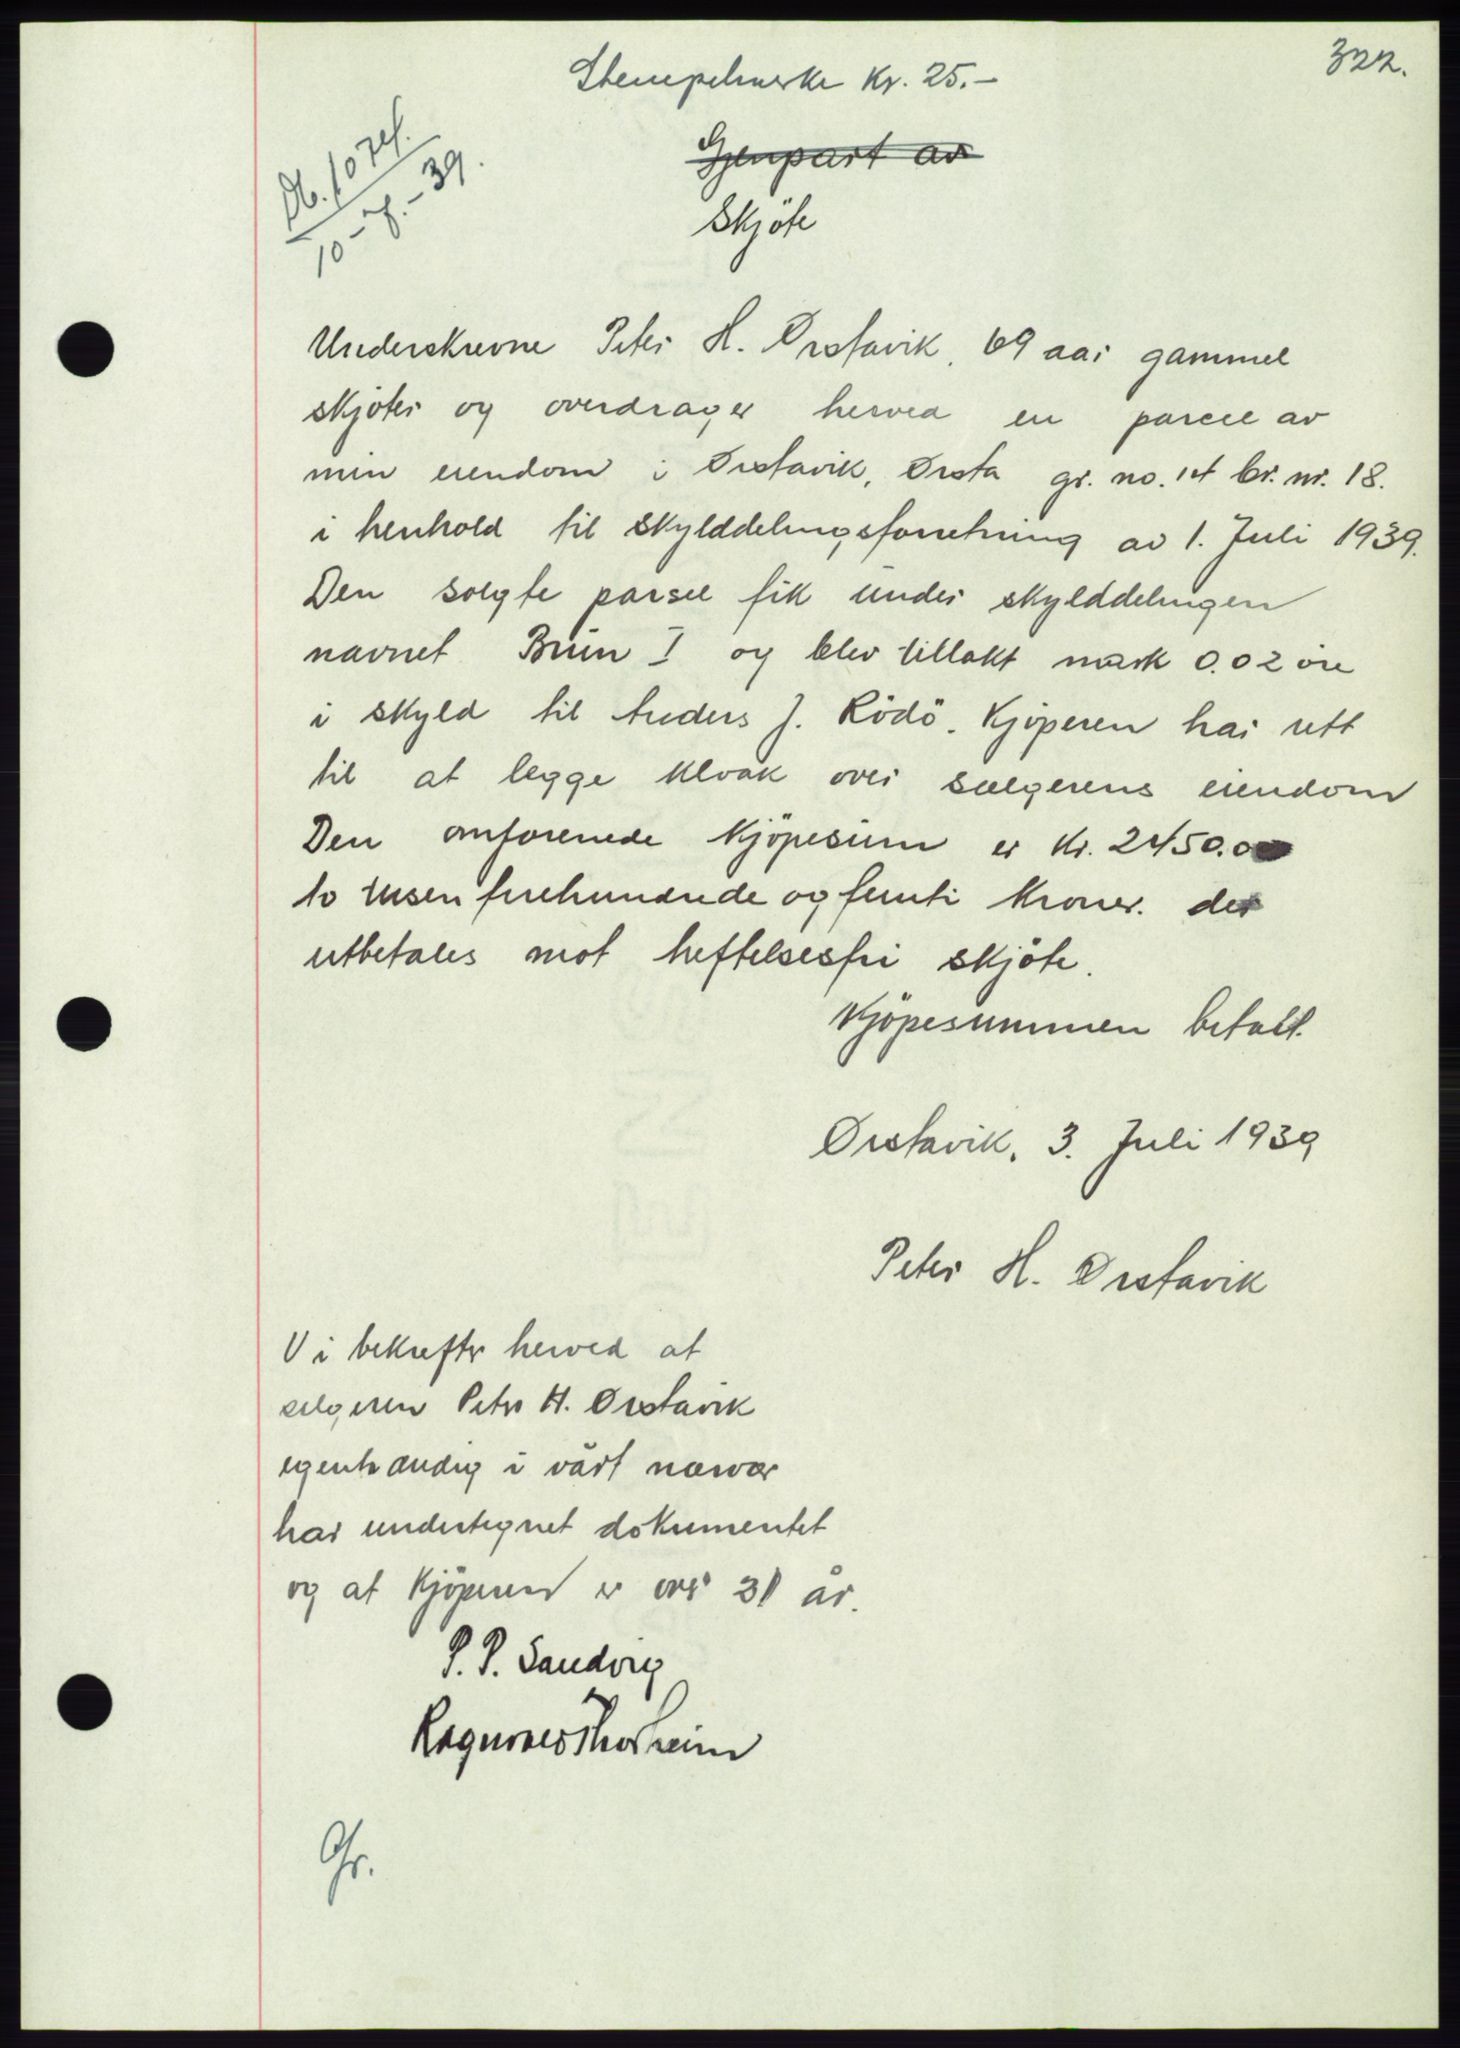 322.
Stempelmerke Kr. 25.-
Db. 1074.
10-7.-39.
Gjenpart av
Skjöte
Underskrevne Peter H. Ørstavik, 69 aar gammel
skjöter og overdrager herved en parcel av
min eiendom i Ørstavik, Ørsta gr. no. 14 br. nr. 18.
i henhold til skylddelingsforretning av 1. Juli 1939.
Den solgte parsel fik under skylddelingen
navnet I og blev tillakt mark 0.02 öre
i skyld til Anders J. Rödö. Kjöperen har rett
til at legge kloak over sælgerens eiendom
Den omforenede Kjöpesum er Kr. 2450.00
to tusen firehundrede og femti Kroner. der
utbetales mot heftelsesfri skjöte.
Kjöpesummen betalt.
Ørstavik, 3. Juli 1939
Peter H. Ørstavik
Vi bekrefter herved at
selgeren Peter H. Ørstavik
egenhændig i vårt nærvær
har undertegnet dokumentet
og at Kjöperen er over 21 år.
P. P. Sandvig
Gr.